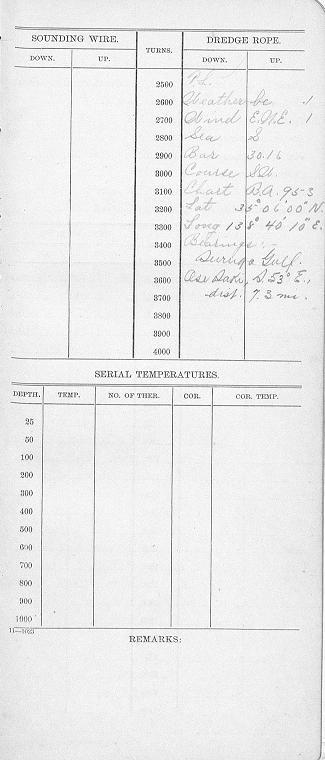 SOUNDING WIRE. TURNS. DREDGE ROPE.
DOWN. UP. DOWN. UP.
2500 P.L.
2600 Weather bc. 1
2700 Wind E.N.E. 1
2800 Sea S
2900 Bar 30.16
3000 Course SW.
3100 Chart B.A. 953
3200 Lat 35° 06' 00" N.
3300 Long 138° 40' 10" E.
3400 Bearings:-
3500 Suruga Gulf.
3600 Ose Saki, S. 53° E.,
3700 dist. 7.3 mi.
3800
3900
4000
SERIAL TEMPERATURES.
DEPTH. TEMP. NO. OF THER. COR. COR. TEMP.
25
50
100
200
300
400
500
600
700
800
900
1000
11—1023
REMARKS: